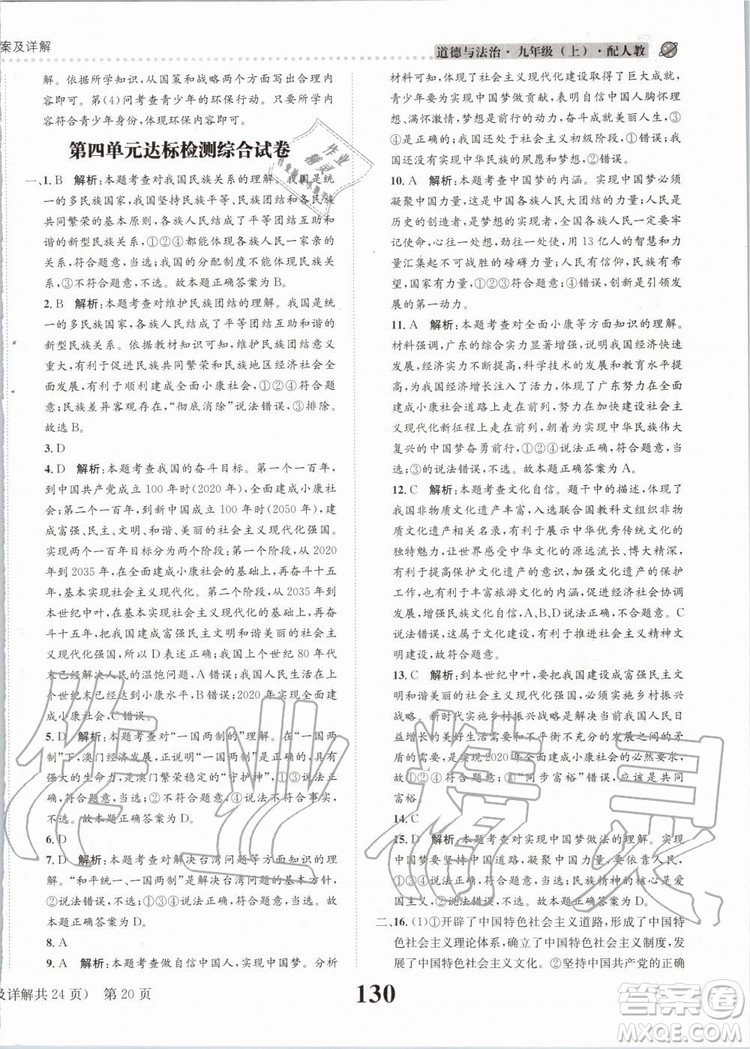 案及详解
道德与法治·九年级（上）·配人教
识。根据所学知识，从国策和战略或目标方面组织答题
内容即可。第(4)问考查青少年的环保行动。所组织的
内容符合青少年身份，符合环保要求即可。
第四单元达标检测综合试卷
一、1. B 解析：本题考查对我国民族关系的理解。我国是统
一的多民族国家，我国坚持民族平等、民族团结和各民族
共同繁荣的基本原则，各族人民形成了平等团结互助和谐
的新型民族关系，①②④都能体现各族人民一家亲的
关系，符合题意，当选；我国的分配制度不能体现民族关
系，③不符合题意。故本题正确答案为B。
2. B 解析：本题考查对维护民族团结的理解。我国是统一
的多民族国家，各民族结成了平等团结互助和谐的社会主
义新型民族关系。依据教材知识可知，维护民族团结意
义重大，有利于促进各民族共同繁荣和民族地区经济社会
全面发展，有利于国家的统一和社会的稳定，①②④符合
题意；民族差异会长期存在，“彻底消除”说法错误，③排除。
故选B。
3. D
4. D 解析：本题考查我国的奋斗目标。第一个一百年，
到中国共产党成立100年时(2020年)全面建成小康社
会；第二个一百年，到新中国成立100年时(2050年)建
成富强、民主、文明、和谐、美丽的社会主义现代化强国。
第二个一百年的实现分为两个阶段：第一个阶段从2020
年到2035年，在全面建成小康社会的基础上，再奋斗十五
年，基本实现社会主义现代化；第二个阶段从2035年到
本世纪中叶，在基本实现社会主义现代化的基础上，再奋
斗十五年，把我国建成富强民主文明和谐美丽的社会主
义现代化强国。所以D表述正确；我国在上个世纪80年代
末已经解决人民的温饱问题，A错误；我国当前总体上实
现小康，B错误；2020年实现全面小康，C错误。
5. D 解析：本题考查对“一国两制”的认识。在“一国两
制”下，澳门经济发展，百姓富裕，“一国两制”的方针具有
强大的生命力，是澳门繁荣稳定的“守护神”，①③说法正
确，符合题意，当选；②不符合题意；④说法不符合事实，
不符合题意。故本题正确答案为D。
6. D
7. D 解析：本题考查对解决台湾问题等方面知识的认识。
“和平统一、一国两制”是我国解决台湾问题的基本方针，
①说法错误；②③④符合题意且说法正确，当选。故本
题正确答案为D。
8. A
9. A 解析：本题考查对中国梦的认识和理解。分析
材料可知，我国社会主义现代化建设取得了巨大成就，人
民生活幸福，为实现中国梦做贡献，都表明中国人胸怀理
想、为梦想而努力、奋斗成就梦想，②③④符合题意；从时
代背景看，我国现在处于社会主义初级阶段，①错误；人民
富裕强调实现中华民族的夙愿和梦想，⑤错误。
10. A 解析：本题考查中国梦的内涵。实现中国梦必须
凝聚中国力量，这就是各族人民大团结的力量。人民是
历史的创造者，实现中国梦，全国各族人民一定要牢
记使命，心往一处想，劲往一处使，用13亿人的智慧和
力量汇集起不可战胜的磅礴力量；①②④均符合题意，
且说法正确，当选；③不符合题意，创新是引领中国发
展的第一动力。
11. A 解析：本题考查对全面小康、中国梦等知识的理解。
材料强调，广东的综合实力显著增强，说明我国经济发
展水平不断提高，科学技术的发展和教育水平提升
为我们提供了强大的动力；体现了广东努力走在全面
建成小康社会道路上走在前列，努力在实现中华民族伟大
复兴的中国梦奋勇前行；①②④的说法正确符合题意，
③的说法错误。故本题正确答案为A。
12. C 解析：本题考查文化自信。题干中的描述，体现非
物质文化遗产丰富了，入选联合国教科文组织非物
质文化遗产名录，有利于展示中华优秀传统文化的
魅力和中华文化的源远流长，有利于提高全民族保护
文化遗产的意识，有利于加强文化遗产的申报与保护
工作，也有利于丰富旅游文化的内涵，A、B、D说法正
确；C说法错误，发展文化遗产有利于社会主义精神文
明建设。故本题正确答案为C。
13. C 解析：依据教材内容，到本世纪中叶要建成富强民主
文明和谐美丽的社会主义现代化强国，必须实施乡村振
兴战略，①正确；解决人民日益增长的美好生活需要和
不平衡不充分的发展之间的矛盾
需要，④正确；2020年实现全面建成小康社会的必然要求，
说法错误，③错误；②“同步富裕”错误，应该是共同
富裕。
14. C
15. A 解析：本题考查实现中国梦做法的理解。实现中
国梦要坚持党的领导、以人民为中心、凝聚中国力量、弘
扬中国精神，①②③④都正确。故本题正确答案为A。
二、16. (1)①开辟了中国特色社会主义道路，形成了中国特
色社会主义理论体系，确立了中国特色社会主义制度，发
展了中国特色社会主义文化。②坚持中国共产党的正确
及详解共24页） 第20页
130
作业精灵
答案圈
MXQE.COM